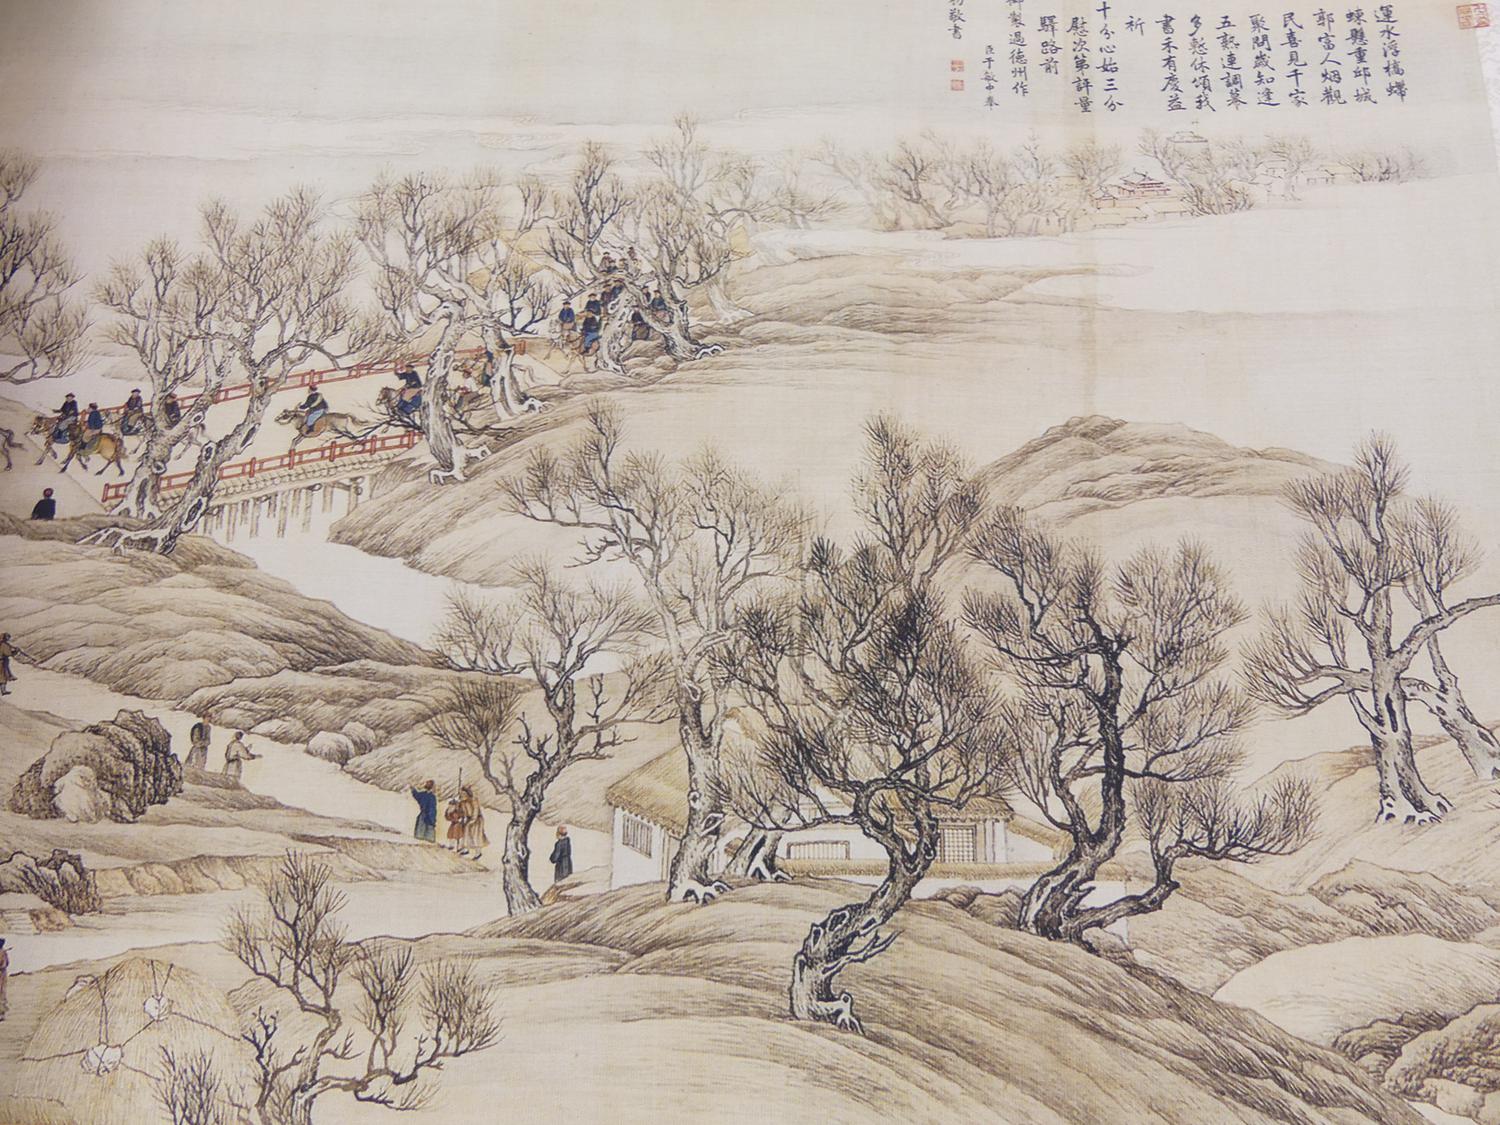 運水浮橋蠕
蝀懸重邱城
郭富人烟觀
民喜見千家
聚問歲知逢
五熟連調幕
多慙休頌我
書禾有慶益
祈
十分心始三分
慰次第評量
驛路前
御製過德州作
臣于敏中奉
勑敬書